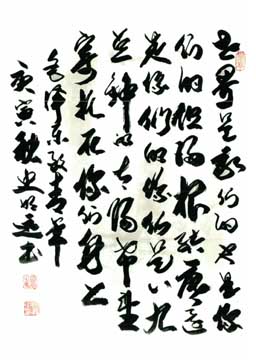 世界是我们的也是你
们的但归根结底还
是你们的你们是八九
点钟的太阳希望
寄托在你们身上
毛泽东致青年
庚寅秋